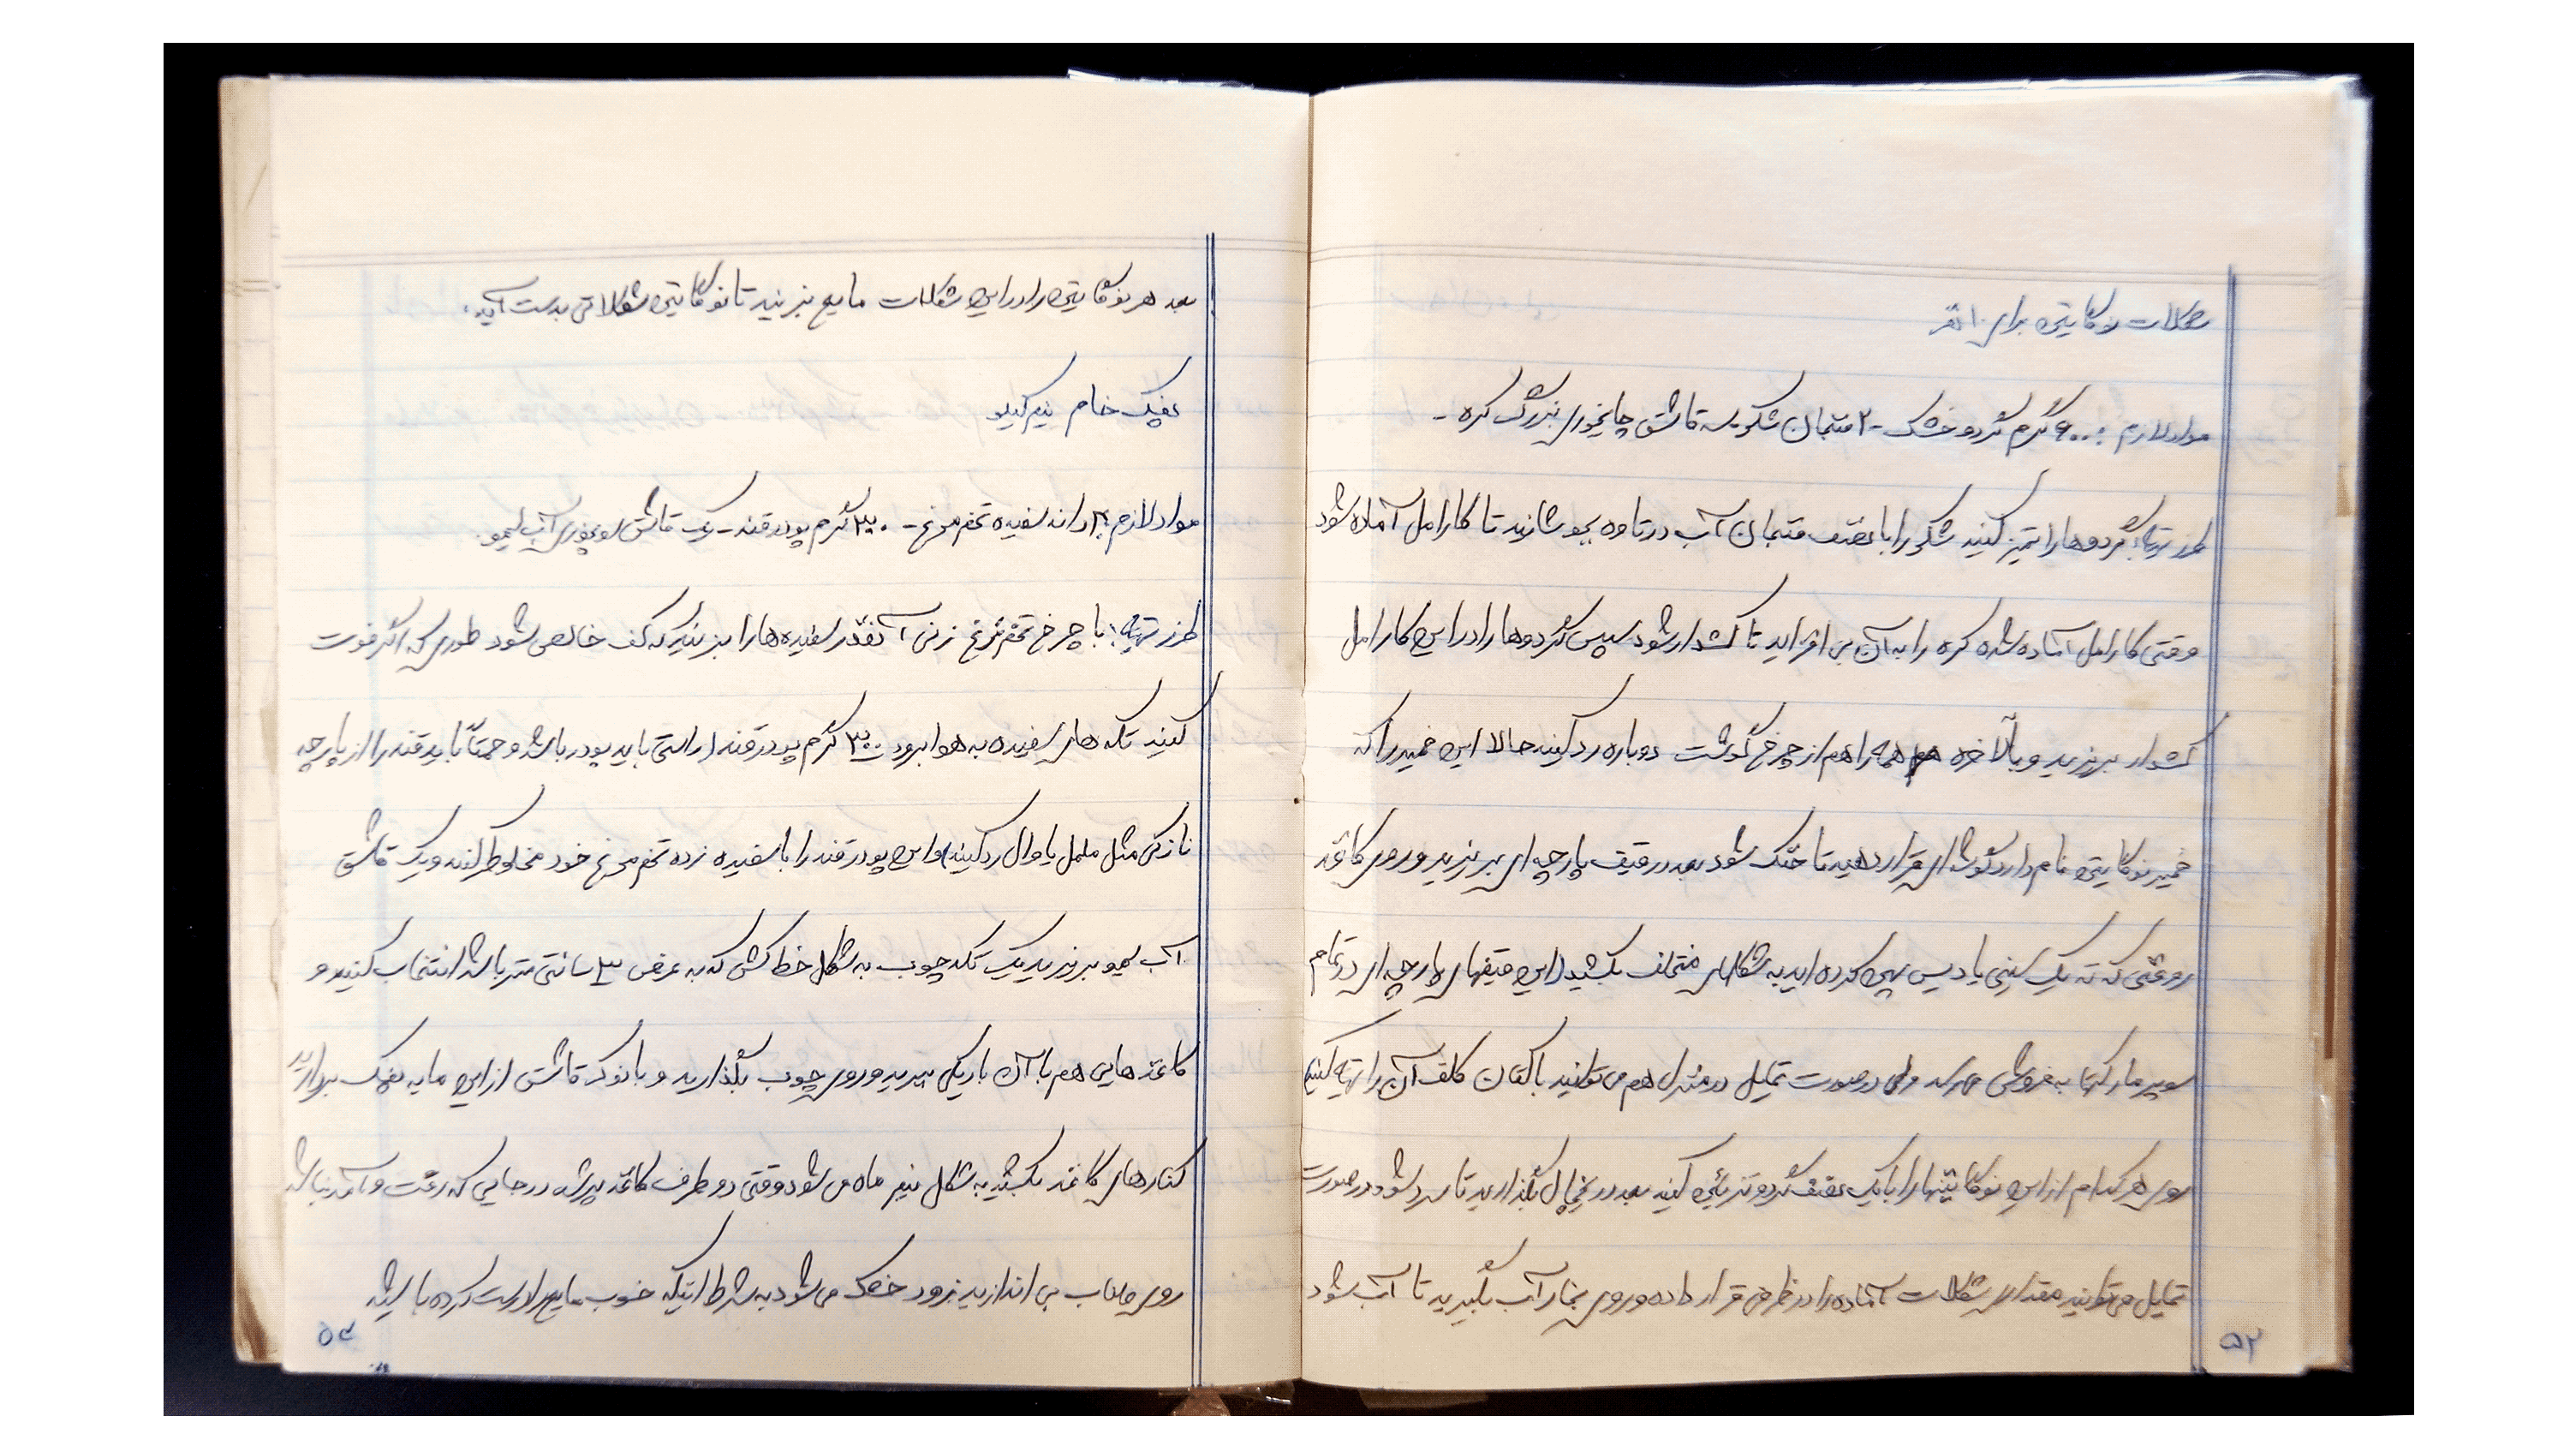 شکلات نوگاتین برای ۱۰ نفر
مواد لازم : ۶۰۰ گرم گردو خشک - ۲ فنجان شکر سه قاشق چایخوری بزرگ کره -
طرز تهیه: گردوها را تمیز کنید شکر را با نصف فنجان آب در تاوه بجوشانید تا کارامل آماده شود
وقتی کارامل آماده شده کره را به آن بی افزاید تا کشدار شود سپس گردوها را در این کارامل
کشدار بریزید و بالاخره همه را هم از چرخ گوشت دوباره رد کنید حالا این خمیر را که
خمیر نوگاتین نام دارد گوشه ای قرار دهید تا خنک شود بعد در قیف پارچه ای بریزید و روی کاغذ
روغنی که ته یک سینی یا دیس پهن کرده اید به شکلهای مختلف بکشید (این قیفهای پارچه ای در تمام
سوپر مارکتها به فروش میرسد ولی در صورت تمایل در منزل هم می توانید با کتان کلفت آن را تهیه کنید)
روی هر کدام از این نوگاتینها را با یک نصف گردو تزیین کنید بعد در یخچال بگذارید تا سرد شود در صورت
تمایل می توانید مقداری شکلات آماده را در ظرفی قرار داده و روی بخار آب بگیرید تا آب شود
۵۲
بعد هر نوگاتین را در این شکلات مایع بزنید تا نوگاتین شکلاتی بدست آید.
پفک خام نیم کیلو
مواد لازم: ۴ دانه سفیده تخم مرغ - ۳۰۰ گرم پودر قند - یک قاشق سوپخوری آب لیمو.
طرز تهیه: با چرخ تخم مرغ زنی آنقدر سفیده ها را بزنید که کف خالص شود طوری که اگر فوت
کنید تکه های سفیده به هوا برود - ۳۰۰ گرم پودر قند (راستی باید پودر باشد و حتماً باید قند را از پارچه
نازکی مثل ململ یا وال رد کنید) و این پودر قند را با سفیده زده تخم مرغ خود مخلوط کنید و یک قاشق
آب لیمو بریزید یک تکه چوب به شکل خط کشی که به عرض ۳ سانتی متر باشد انتخاب کنید و
کاغذ هایی هم با آن باریکی ببرید و روی چوب بگذارید و با نوک قاشق از این مایه پفک بردارید
کنارهای کاغذ بکشید به شکل نیم ماه می شود وقتی دو طرف کاغذ پر شد در جایی که رفت و آمد نباشد
روی می اندازید زود خشک می شود به شرط اینکه خوب مایع را درست کرده باشید
۵۳